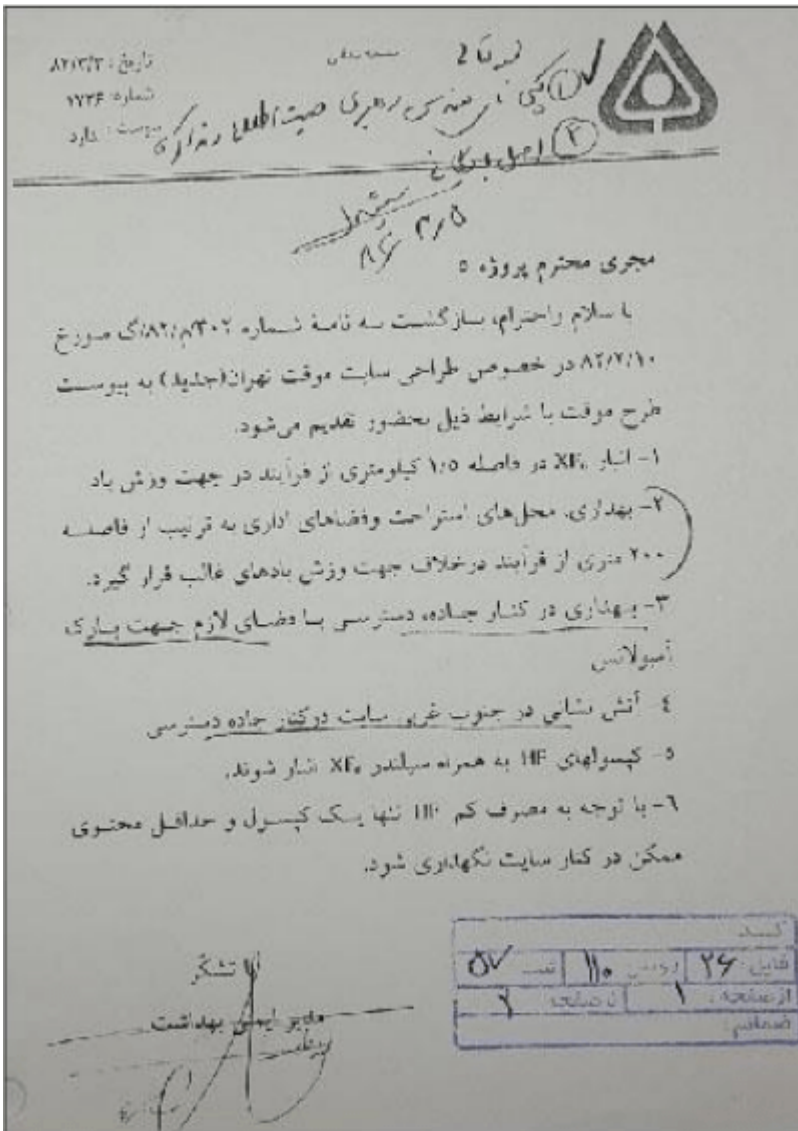 تاریخ: ۸۲/۳/۳
شماره: ۷۷۳۶
پیوست: دارد
بسمه‌تعالی
۱ کپی
۲ اصل بایگانی
مجری محترم پروژه ۵
با سلام واحترام، بازگشت به نامهٔ شماره ۳۰۲/م/۸۲/گ مورخ
۸۲/۲/۱۰ در خصوص طراحی سایت موقت تهران(جدید) به پیوست
طرح موقت با شرایط ذیل بحضور تقدیم می‌شود.
۱- انبار XF₆ در فاصله ۱/۵ کیلومتری از فرآیند در جهت وزش باد
۲- بهداری، محل‌های استراحت وفضاهای اداری به ترتیب از فاصله
۲۰۰ متری از فرآیند درخلاف جهت وزش بادهای غالب قرار گیرد.
۳- بهداری در کنار جاده، دسترسی با فضای لازم جهت پارک
آمبولانس
٤- آتش نشانی در جنوب غربی سایت درکنار جاده دسترسی
۵- کپسولهای HF به همراه سیلندر XF₆ انبار شوند.
٦- با توجه به مصرف کم HF تنها یک کپسول و حداقل محتوی
ممکن در کنار سایت نگهداری شود.
با تشکر
مدیر ایمنی بهداشت
فایل ۲۶
۱۱۰
۵۷
از صفحه ۱ تا صفحه ۲
ضمائم: